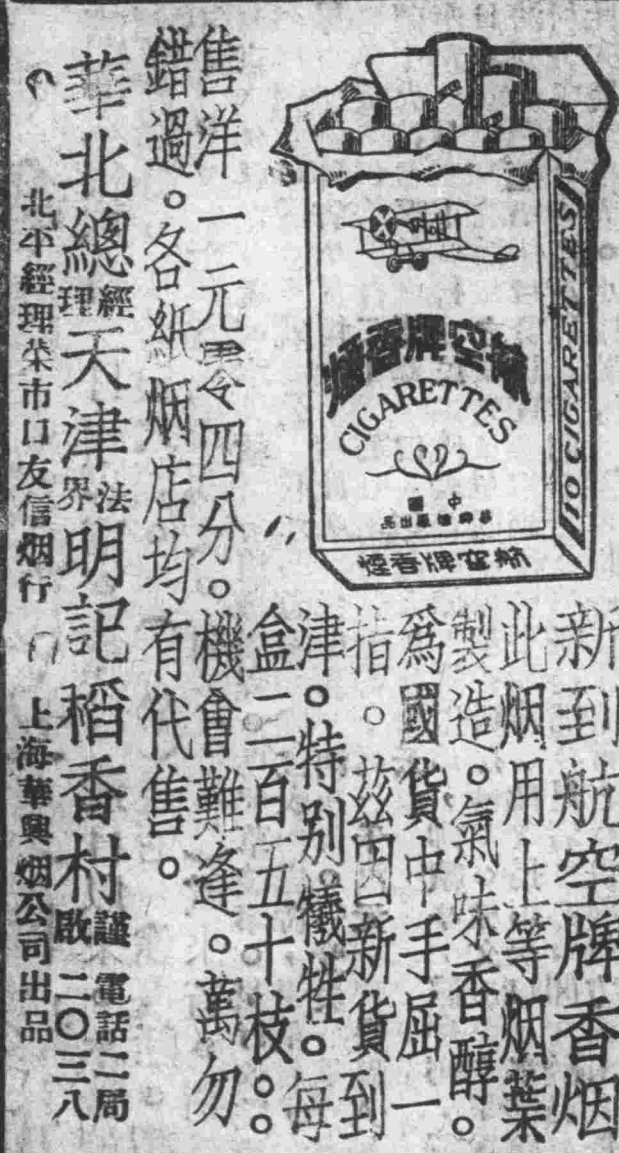 航空牌香煙
CIGARETTES
中國
華興煙公司出品
航空牌香煙
10 CIGARETTES
新到航空牌香烟
此烟用上等烟葉
製造。氣味香醇。
爲國貨中手屈一
指。茲因新貨到
津。特别犧牲。每
盒二百五十枝。。
售洋一元零令四分。機會難逢。萬勿
錯過。各紙烟店均有代售。
華北總經理天津法界明記稻香村謹啟 電話二局二〇三八
北平經理柴市口友信烟行 上海華興烟公司出品